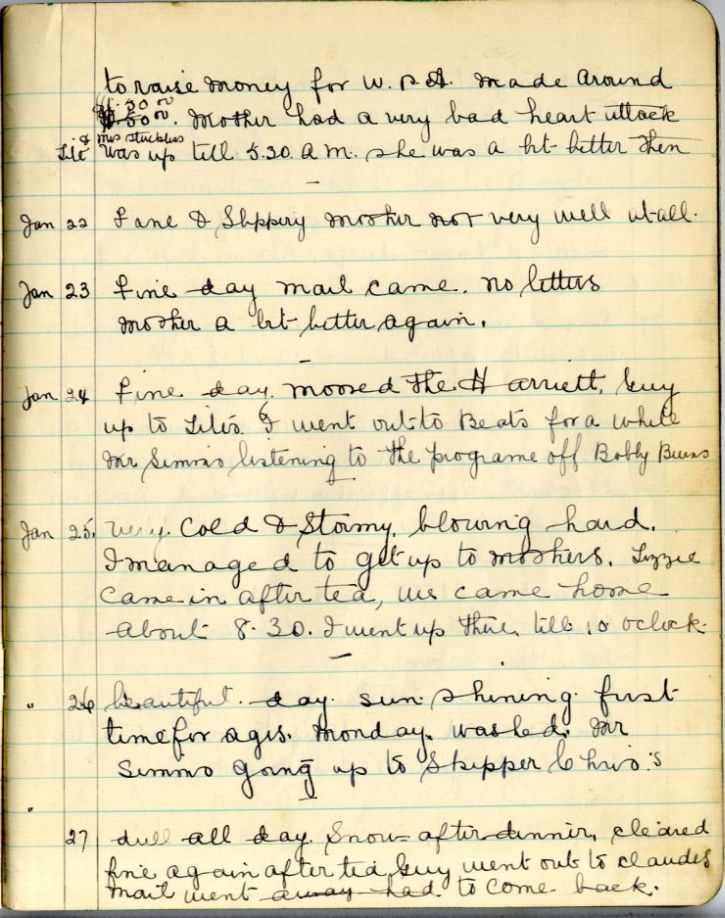 to raise money for W. P. A. made around
$1.30 00
$50 00. Mother had a very bad heart attack
& Mrs Stuckless
Lile was up till 5.30. a m. she was a bit better then
Jan 22 Fine & Slippery mother not very well at all.
Jan 23 Fine day mail came. no letters
mother a bit better again.
Jan 24 Fine day. moored the Harriett, Guy
up to Lile's. I went out to Beats for a while
Mr Simms listening to the programe off Bobby Burns
Jan 25. very. cold & Stormy. blowing hard.
I managed to get up to mothers. Lizzie
came in after tea, we came home
about 8.30. I went up there, till 10 oclock.
" 26 beautiful. day. sun shining first
time for ages. Monday. washed. Mr
Simms going up to Skipper Chris's
"
27 dull all day. Snow after dinner, cleared
fine again after tea, Guy went out to claudes
mail went away had to come back.